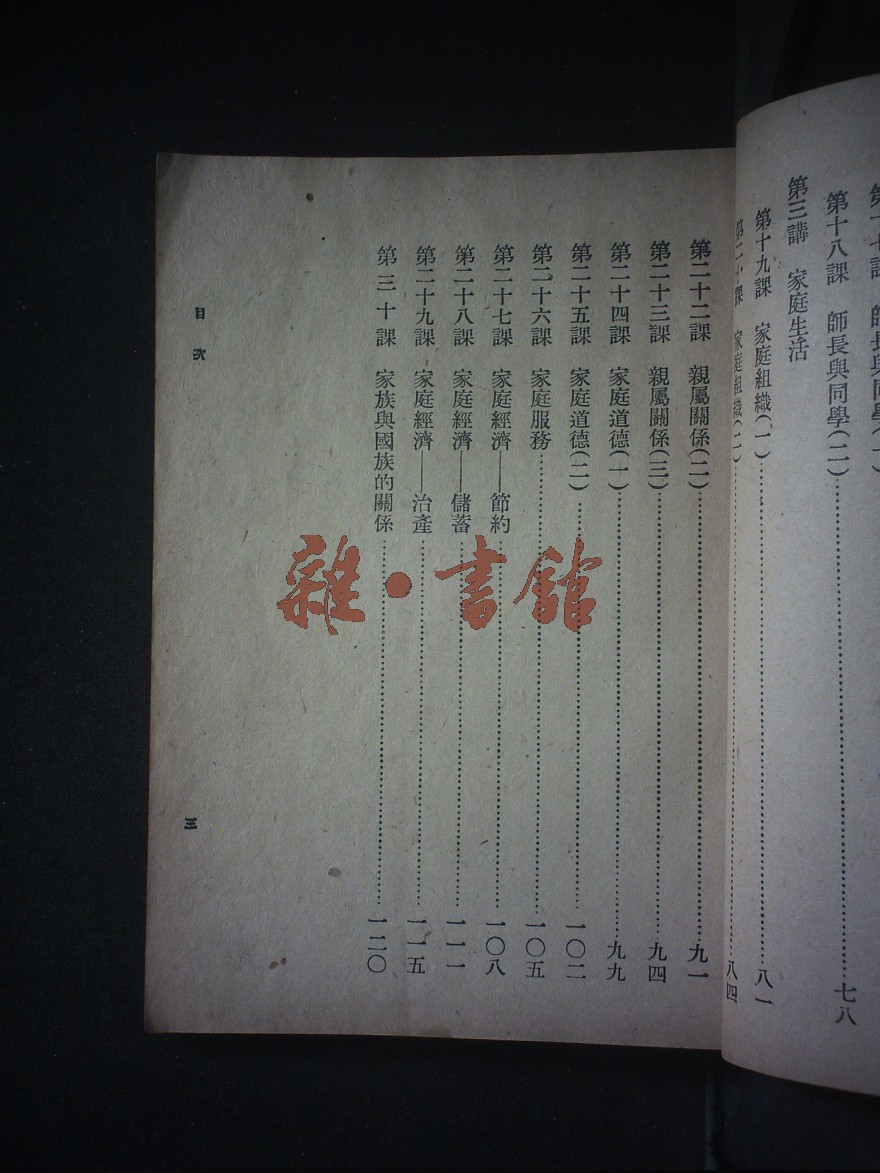 師長與同學(一)
第十八課 師長與同學(二)……七八
第三講 家庭生活
第十九課 家庭組織(一)……八一
第二十課 家庭組織(二)……八四
第二十二課 親屬關係(二)……九一
第二十三課 親屬關係(三)……九四
第二十四課 家庭道德(一)……九九
第二十五課 家庭道德(二)……一〇二
第二十六課 家庭服務……一〇五
第二十七課 家庭經濟——節約……一〇八
第二十八課 家庭經濟——儲蓄……一一一
第二十九課 家庭經濟——治產……一一五
第三十課 家族與國族的關係……一二〇
目次
三
雜·書館